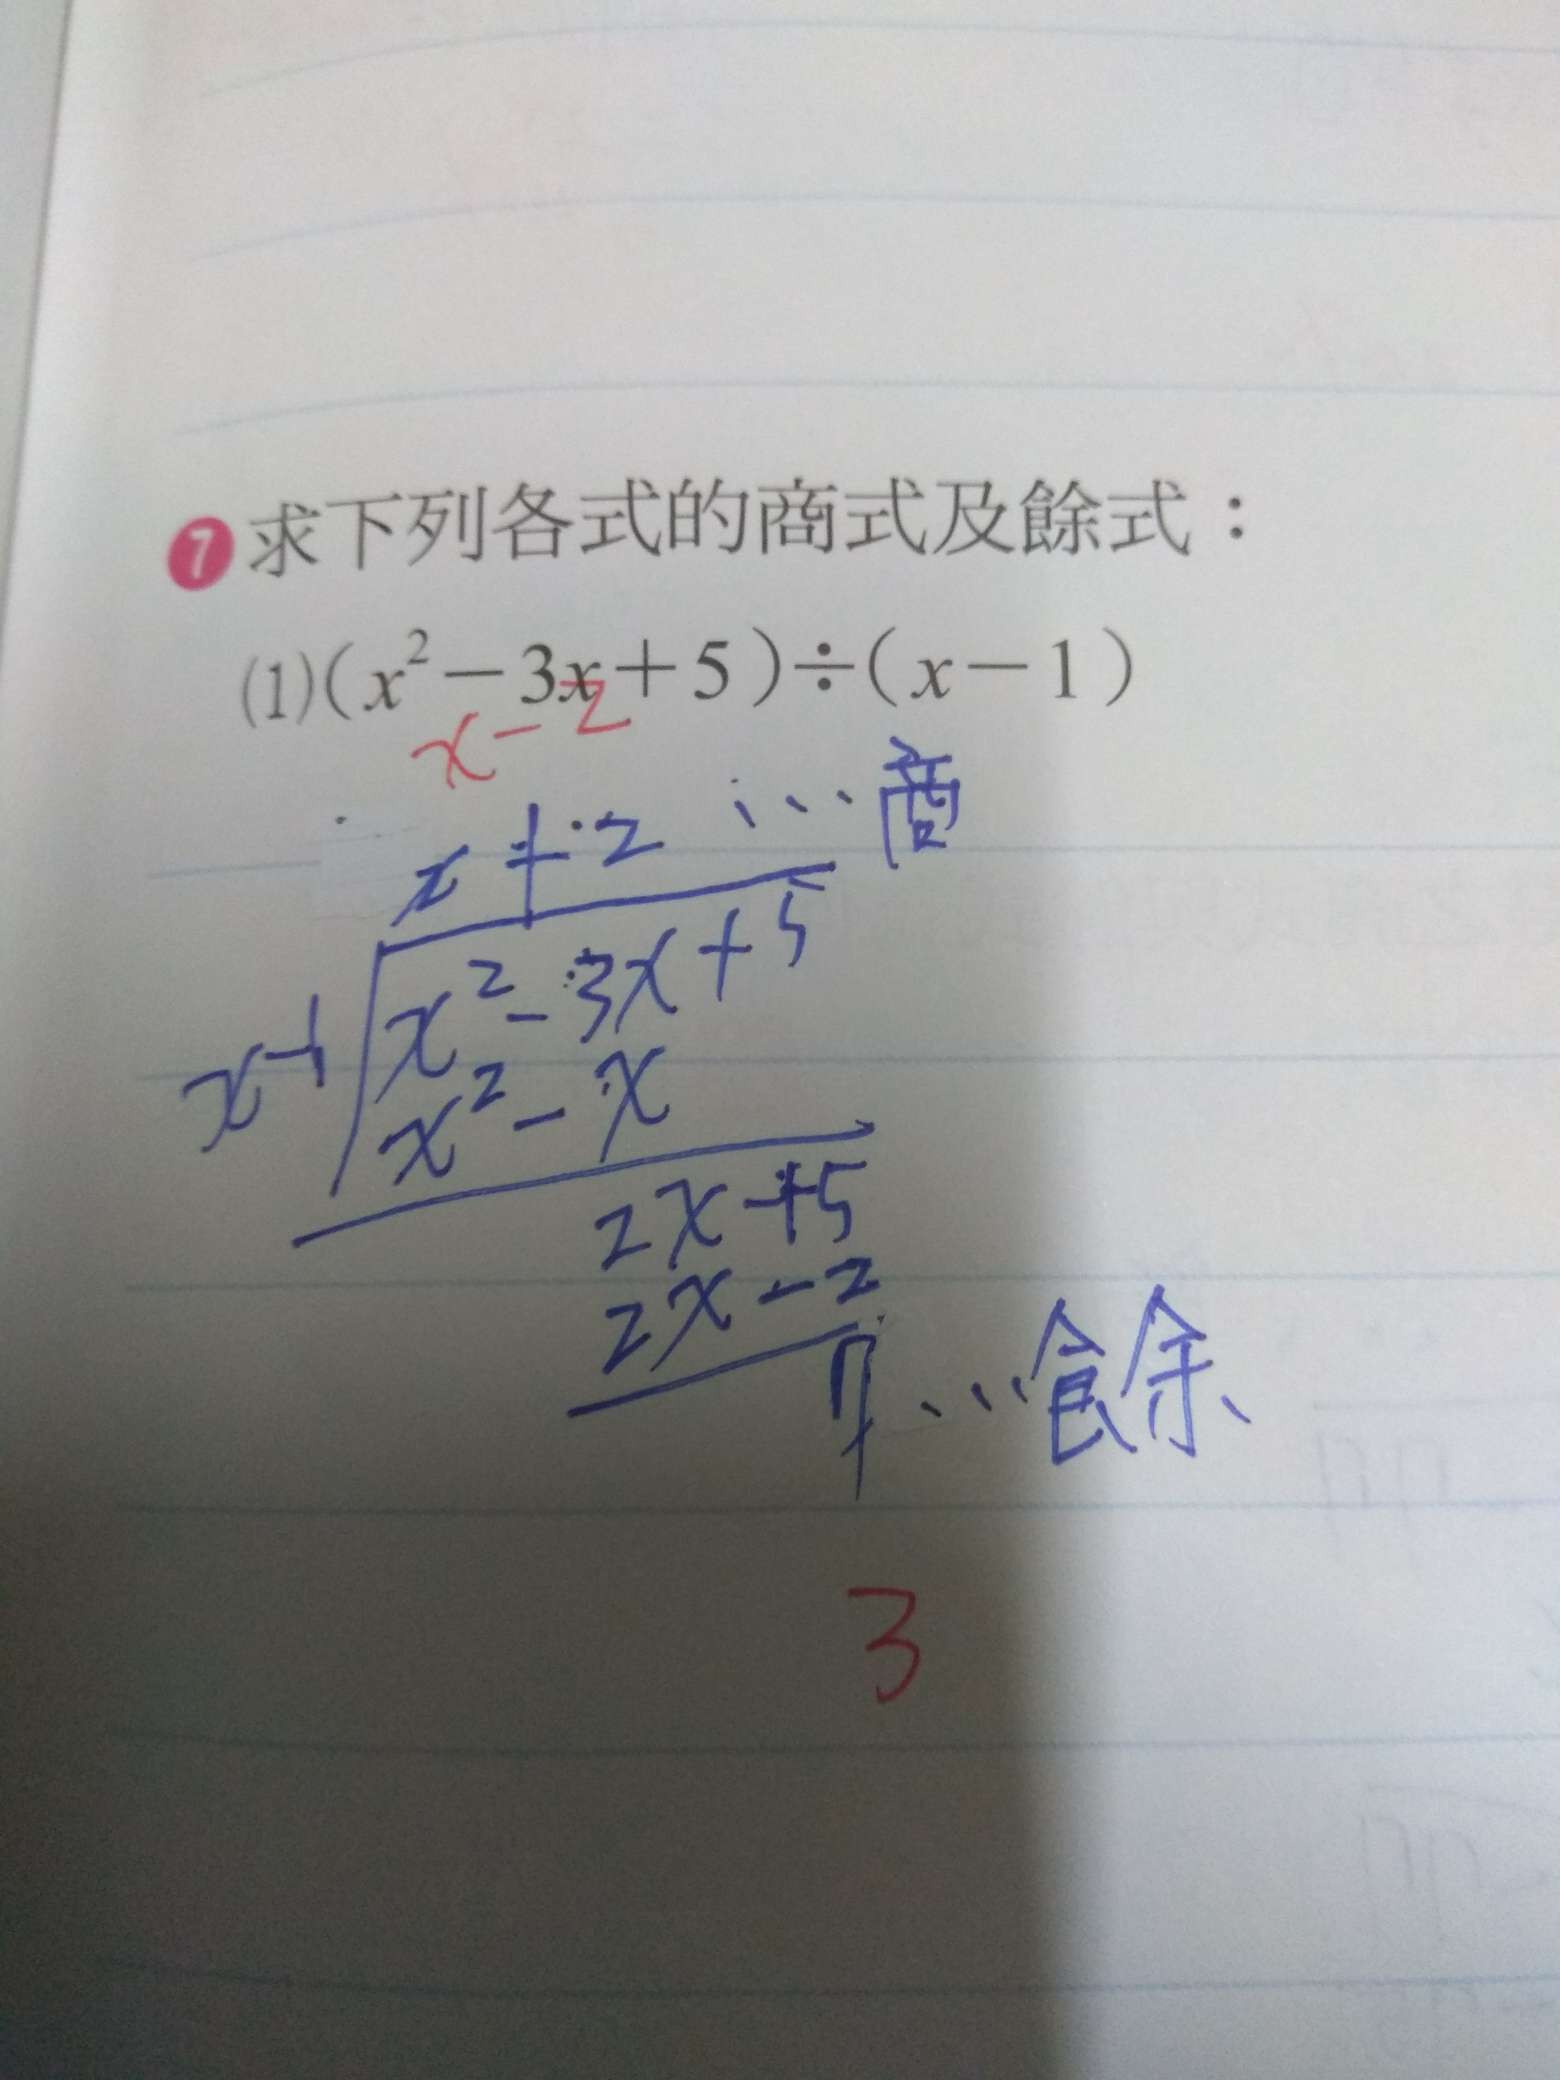 7 求下列各式的商式及餘式：
(1)(x²-3x+5)÷(x-1)
x-2
x+2 ...商
x-1 x²-3x+5
x²-x
2x+5
2x-2
7 ...餘
3